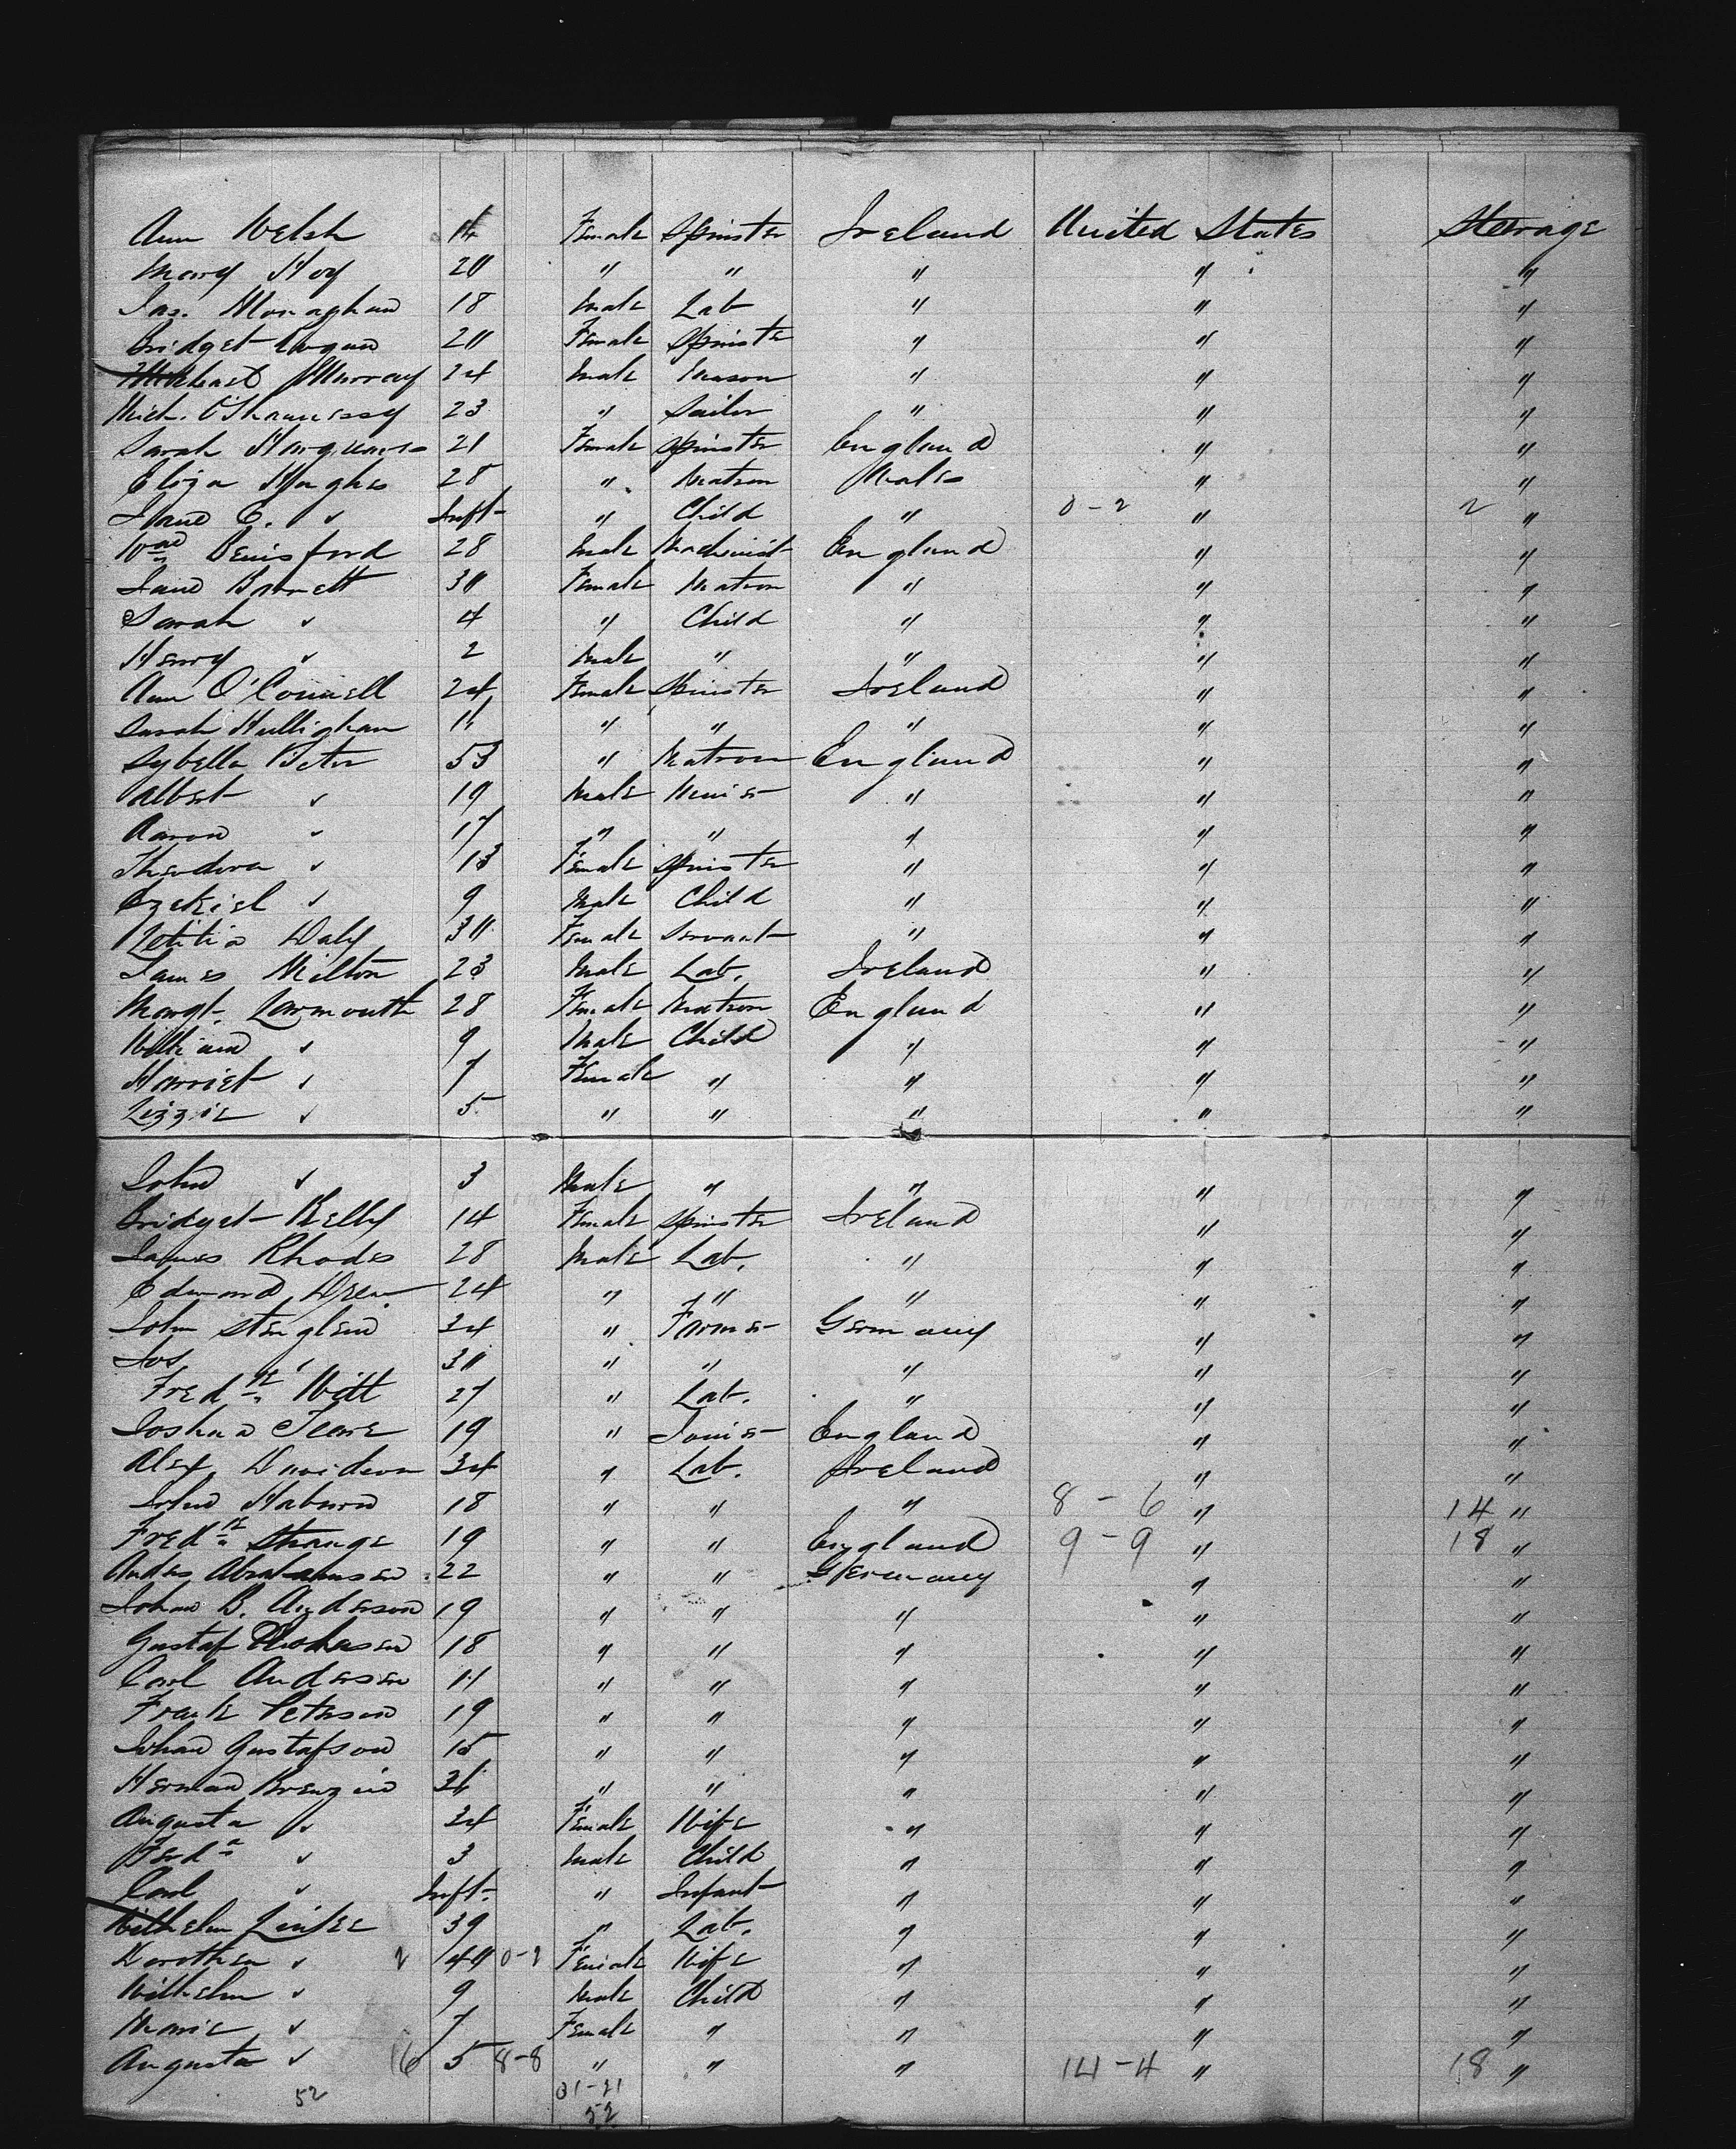 Ann Welsh 16 Female Spinster Ireland United States Steerage
Mary Hoy 20 " " " " "
Jas. Monaghan 18 Male Lab " " "
Bridget Logan 20 Female Spinster " " "
Michael Murray 24 Male Mason " " "
Mich. O'Shaunessy 23 " Sailor " " "
Sarah 21 Female Spinster England " "
Eliza Hughes 28 " Matron Wales " "
Jane E. " Inft " Child " 0-2 " 2 "
Wm Benisford 28 Male Machinist England " "
Jane Barrett 30 Female Matron " " "
Sarah " 4 " Child " " "
Henry " 2 Male " " " "
Ann O'Connell 24 Female Spinster Ireland " "
Sarah Hullighan 16 " " " " "
Sybella Peter 53 " Matron England " "
Albert " 19 Male Miner " " "
Aaron " 17 " " " " "
Theodora " 13 Female Spinster " " "
Ezekiel " 9 Male Child " " "
Letitia Daly 30 Female Servant " " "
James Milton 23 Male Lab. Ireland " "
Margt. Larmouth 28 Female Matron England " "
William " 9 Male Child " " "
Harriet " 7 Female " " " "
Lizzie " 5 " " " " "
John " 3 Male " " " "
Bridget Kelly 14 Female Spinster Ireland " "
James Rhodes 28 Male Lab. " " "
Edward Drew 24 " " " " "
John Stenglein 34 " Farmer Germany " "
Jos. " 30 " " " " "
Fredk Witt 27 " Lab. " " "
Joshua Teare 19 " Joiner England " "
Alex Davidson 34 " Lab. Ireland " "
John 18 " " " 8-6 " 14 "
Fredk Strange 19 " " England 9-9 " 18 "
Andes Abrahamsen 22 " " Germany " "
Johan B. Anderson 19 " " " " "
Gustaf 18 " " " " "
Carl Andersen " " " " "
Frank Peterson 19 " " " " "
Johan Gustafson 15 " " " " "
Herman 36 " " " " "
Augusta " 34 Female Wife " " "
Ferd " 3 Male Child " " "
Carl " Inft. " Infant " " "
Wilhelm Linke 39 " Lab. " " "
Dorothea " 2 40 0-2 Female Wife " " "
Wilhelm " 9 Male Child " " "
Marie " 7 Female " " " "
Augusta " 16 5 8-8 " " " 14-4 " 18 "
52 31-21
52